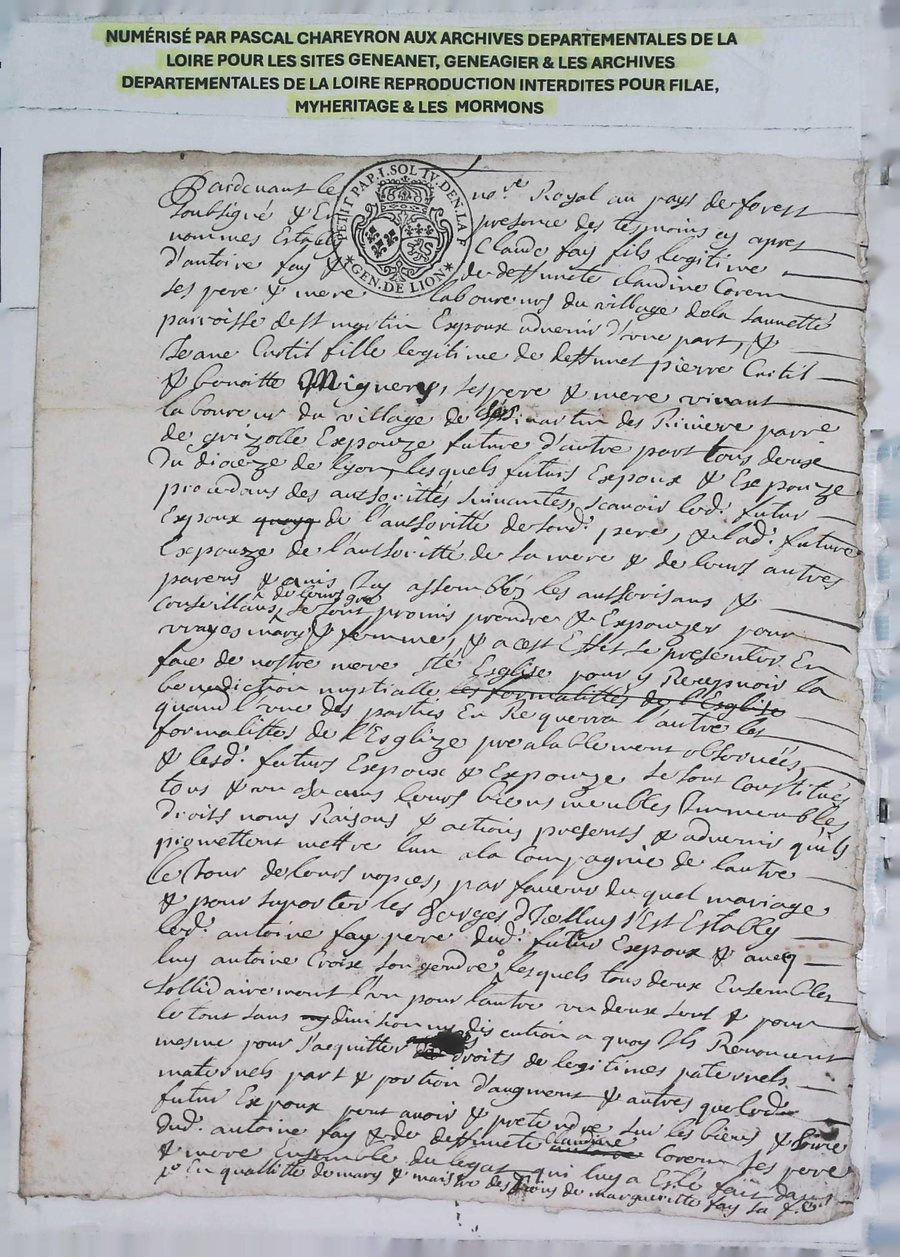 NUMÉRISÉ PAR PASCAL CHAREYRON AUX ARCHIVES DEPARTEMENTALES DE LA
LOIRE POUR LES SITES GENEANET, GENEAGIER & LES ARCHIVES
DEPARTEMENTALES DE LA LOIRE REPRODUCTION INTERDITES POUR FILAE,
MYHERITAGE & LES MORMONS
PETIT PAP. 1. SOL IV. DEN. LA F
GEN. DE LION
Pardevant le no.re Royal au pays de forest
soubsigné & presence des tesmoins cy apres
nommes Establ Claude fay fils legitime
d'antoine fay & de deffuncte claudine Coren
ses pere & mere laboureurs du village dela
parroisse de st martin Expoux advenir d'une part, &
Jeane Curtil fille legitime de deffunct pierre Curtil
& benoitte Miguery, ses pere & mere vivant
laboureur du village de des Riviere parre
de grizolle Expouze future d'autre part tous deux
du dioceze de lyon, lesquels futurs Expoux & Expouze
procedans des authorittés suivantes, scavoir led. futur
Expoux de l'authoritté de sond. pere, & lad. future
Expouze de l'authoritté de sa mere & de leurs autres
parens & amis assemblés les authorisans &
conseillans, de leurs gré se sont promis prendre & Expouzer pour
vrayes mary & femme, & a cest Effet se presenter En
face de nostre mere ste Esglise pour y Recepvoir la
benediction nuptialle les formalittés de l'Esglise
quand l'une des parties En Requerra l'autre les
formalittes de l'Esglize prealablement observées,
& lesd. futurs Expoux & Expouze se sont Constitués
tous & un chacuns leurs biens meubles Immeubles
droits noms Raisons & actions presents & advenir quils
promettent mettre l'un a la Compagnie de l'autre
le Jour de leurs nopces, par faveur du quel mariage
& pour suporter les Charges d'Icelluy s'Est Estably
led. antoine fay pere dud. futur Expoux & aveq
luy antoine Croize son gendre, lesquels tous deux Ensembles
sollidairement l'un pour l'autre un deux seul & pour
le tout sans division ny discution a quoy Ils Renoncent
mesme pour s'acquitter droits de legitimes paternels
maternels part & portion d'augment & autres que led.
futur Expoux peut avoir & pretendre sur les biens &
dud. antoine fay & de deffuncte claudine Coren ses pere
& mere Ensemble du legat qui luy a Esté fait dans
En quallitte de mary & maistre des biens de margueritte fay sa